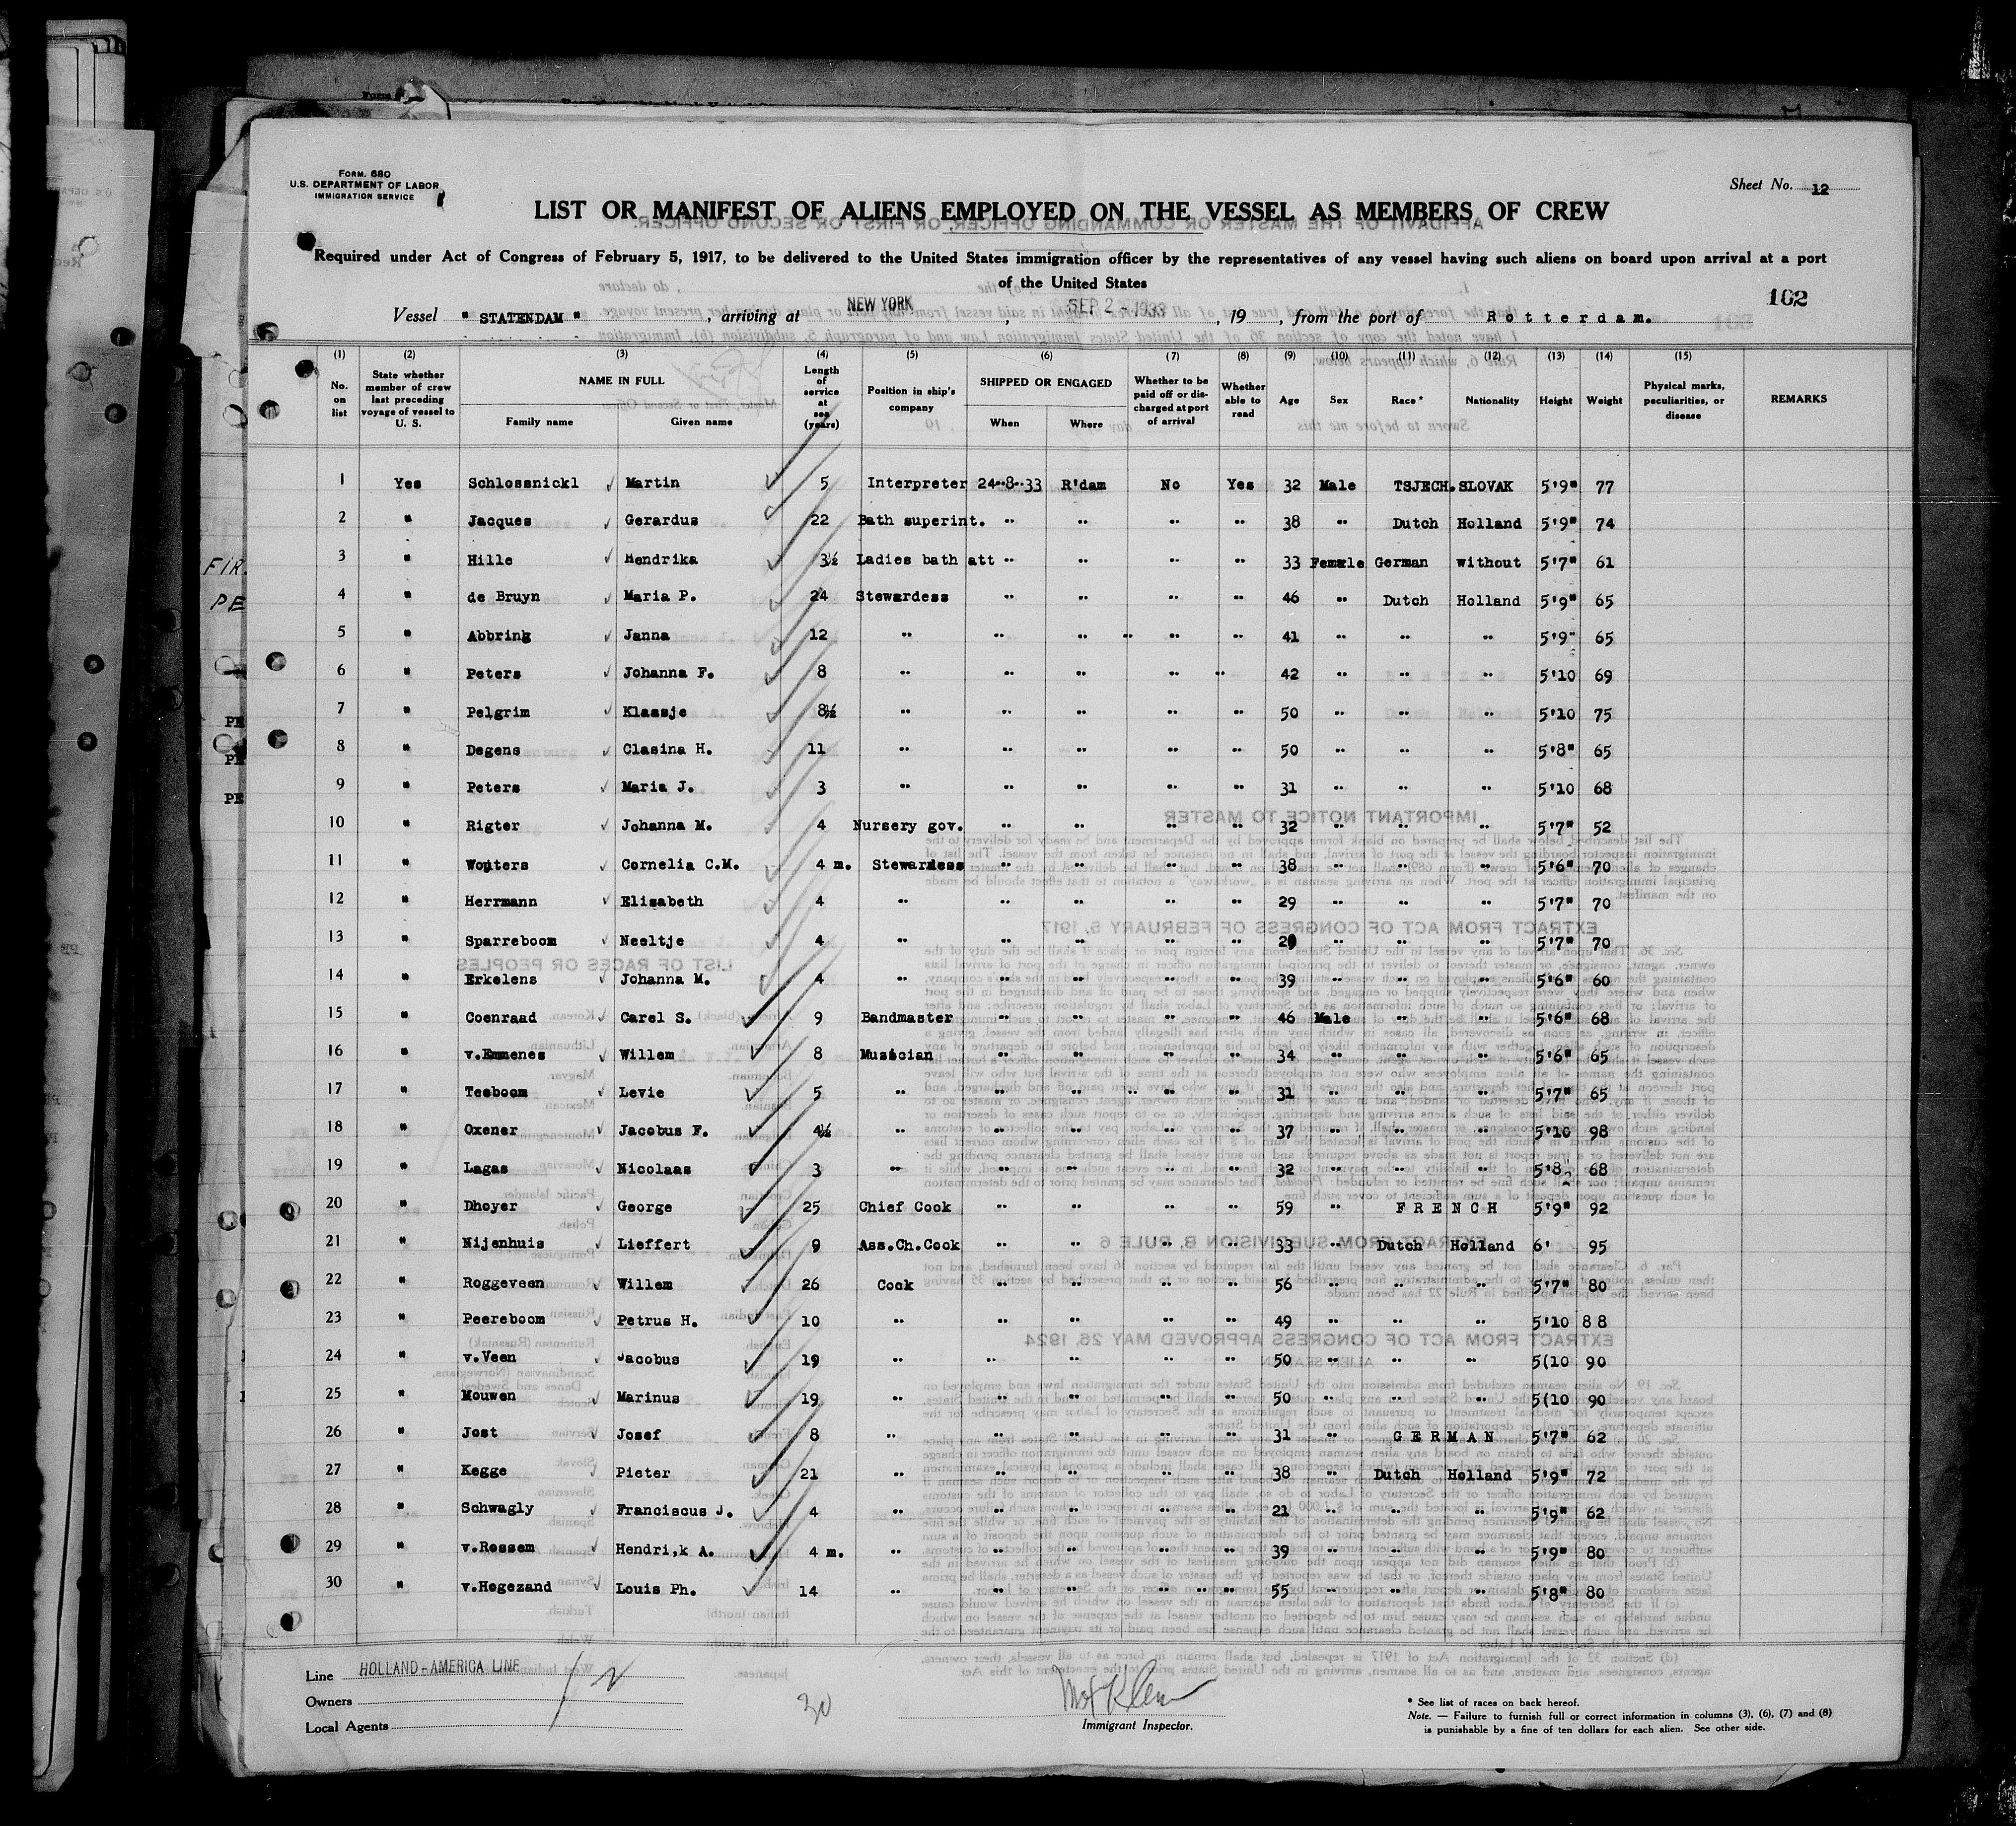 Form. 680
U.S. DEPARTMENT OF LABOR
IMMIGRATION SERVICE
Sheet No. 12
LIST OR MANIFEST OF ALIENS EMPLOYED ON THE VESSEL AS MEMBERS OF CREW
Required under Act of Congress of February 5, 1917, to be delivered to the United States immigration officer by the representatives of any vessel having such aliens on board upon arrival at a port
of the United States
162
Vessel "STATENDAM", arriving at NEW YORK, SEP 2 - 1933, 19 , from the port of Rotterdam.
(1) (2) (3) (4) (5) (6) (7) (8) (9) (10) (11) (12) (13) (14) (15)
No. on list State whether member of crew last preceding voyage of vessel to U. S. NAME IN FULL Family name Given name Length of service at sea (years) Position in ship's company SHIPPED OR ENGAGED When Where Whether to be paid off or discharged at port of arrival Whether able to read Age Sex Race* Nationality Height Weight Physical marks, peculiarities, or disease REMARKS
1 Yes Schlossnickl Martin 5 Interpreter 24-8-33 R'dam No Yes 32 Male TSJECH.SLOVAK 5'9" 77
2 " Jacques Gerardus 22 Bath superint. " " " " 38 " Dutch Holland 5'9" 74
3 " Hille Hendrika 3½ Ladies bath att " " " " 33 Female German without 5'7" 61
4 " de Bruyn Maria P. 24 Stewardess " " " " 46 " Dutch Holland 5'9" 65
5 " Abbring Janna 12 " " " " " 41 " " " 5'9" 65
6 " Peters Johanna F. 8 " " " " " 42 " " " 5'10 69
7 " Pelgrim Klaasje 8½ " " " " " 50 " " " 5'10 75
8 " Degens Clasina H. 11 " " " " " 50 " " " 5'8" 65
9 " Peters Maria J. 3 " " " " " 31 " " " 5'10 68
10 " Rigter Johanna M. 4 Nursery gov. " " " " 32 " " " 5'7" 52
11 " Wouters Cornelia C.M. 4 m. Stewardess " " " " 38 " " " 5'6" 70
12 " Herrmann Elisabeth 4 " " " " " 29 " " " 5'7" 70
13 " Sparreboom Neeltje 4 " " " " " " " " 5'7" 70
14 " Erkelens Johanna M. 4 " " " " " 39 " " " 5'6" 60
15 " Coenraad Carel S. 9 Bandmaster " " " " 46 Male " " 5'6" 68
16 " v.Emmenes Willem 8 Musician " " " " 34 " " " 5'6" 65
17 " Teeboom Levie 5 " " " " " 31 " " " 5'7" 65
18 " Oxener Jacobus F. 4½ " " " " " 37 " " " 5'10 98
19 " Lagas Nicolaas 3 " " " " " 32 " " " 5'8 68
20 " Dhoyer George 25 Chief Cook " " " " 59 " FRENCH 5'9" 92
21 " Nijenhuis Lieffert 9 Ass.Ch.Cook " " " " 33 " Dutch Holland 6' 95
22 " Roggeveen Willem 26 Cook " " " " 56 " " " 5'7" 80
23 " Peereboom Petrus H. 10 " " " " " 49 " " " 5'10 88
24 " v.Veen Jacobus 19 " " " " " 50 " " " 5(10 90
25 " Mouwen Marinus 19 " " " " " 50 " " " 5(10 90
26 " Jost Josef 8 " " " " " 31 " GERMAN 5'7" 62
27 " Kegge Pieter 21 " " " " " 38 " Dutch Holland 5'9" 72
28 " Schwagly Franciscus J. 4 " " " " " 21 " " " 5'9" 62
29 " v.Rossem Hendri,k A. 4 m. " " " " " 39 " " " 5'9" 80
30 " v.Hogezand Louis Ph. 14 " " " " " 55 " " " 5'8" 80
Line HOLLAND-AMERICA LINE
Owners
Local Agents
30
Immigrant Inspector.
* See list of races on back hereof.
Note. — Failure to furnish full or correct information in columns (3), (6), (7) and (8)
is punishable by a fine of ten dollars for each alien. See other side.